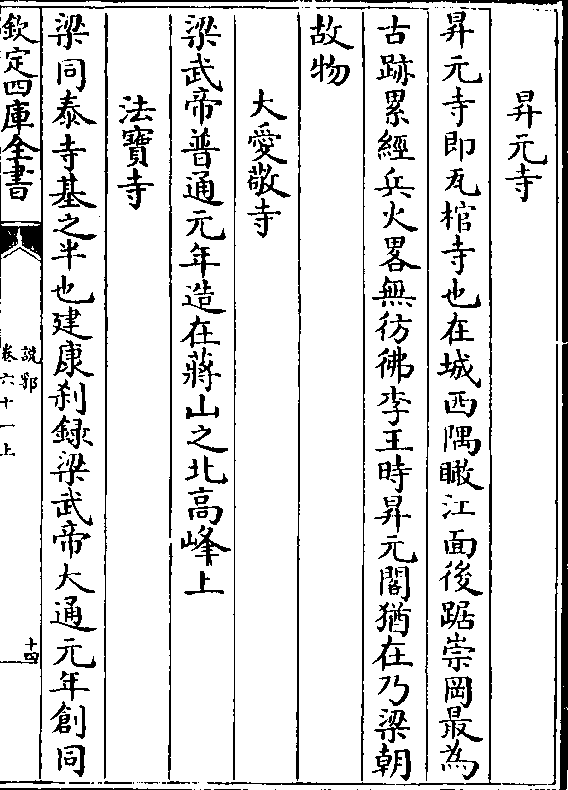 昇元寺
昇元寺即瓦棺寺也在城西隅瞰江面後踞崇岡最為
古跡累經兵火畧無彷彿李王時昇元閣猶在乃梁朝
故物
大愛敬寺
梁武帝普通元年造在蔣山之北高峰上
法寶寺
梁同泰寺基之半也建康刹録梁武帝大通元年創同
欽定四庫全書
說郛
卷六十一上
十四